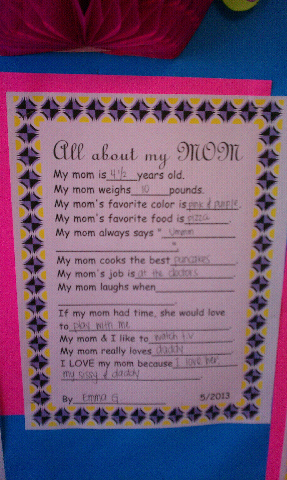 All about my MOM
My mom is 4 1/2 years old.
My mom weighs 10 pounds.
My mom's favorite color is pink & purple.
My mom's favorite food is pizza.
My mom always says "ummm
"
My mom cooks the best pancakes
My mom's job is at the doctors
My mom laughs when
.
If my mom had time, she would love
to play with me.
My mom & I like to watch t.v.
My mom really loves daddy
I LOVE my mom because I love her,
my sissy & daddy.
By Emma G. 5/2013